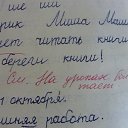 ше ши
рик Миша Миша
ет читать книги
береги книги!
См. На уроках бол
тает
октября.
шняя работа.